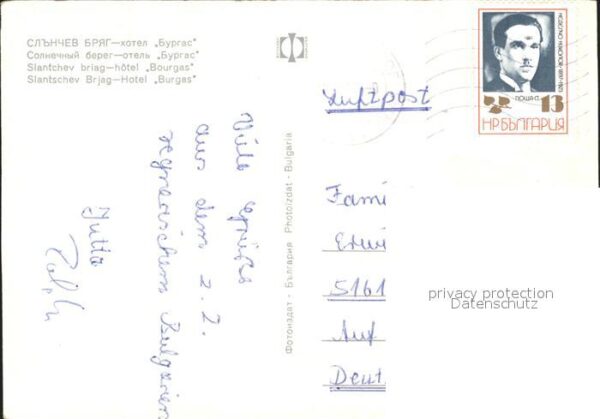 СЛЪНЧЕВ БРЯГ—хотел „Бургас“
Солнечный берег—отель „Бургас“
Slantchev briag—hôtel „Bourgas“
Slantschev Brjag—Hotel „Burgas“
Luftpost
НР БЪЛГАРИЯ
13
ПОЩА
Viele Grüße
aus dem z. Z.
Bulgarien
Jutta
Фотоиздат - България Photoizdat - Bulgaria
Fami
Erwi
5161
Auf
Deut
privacy protection
Datenschutz